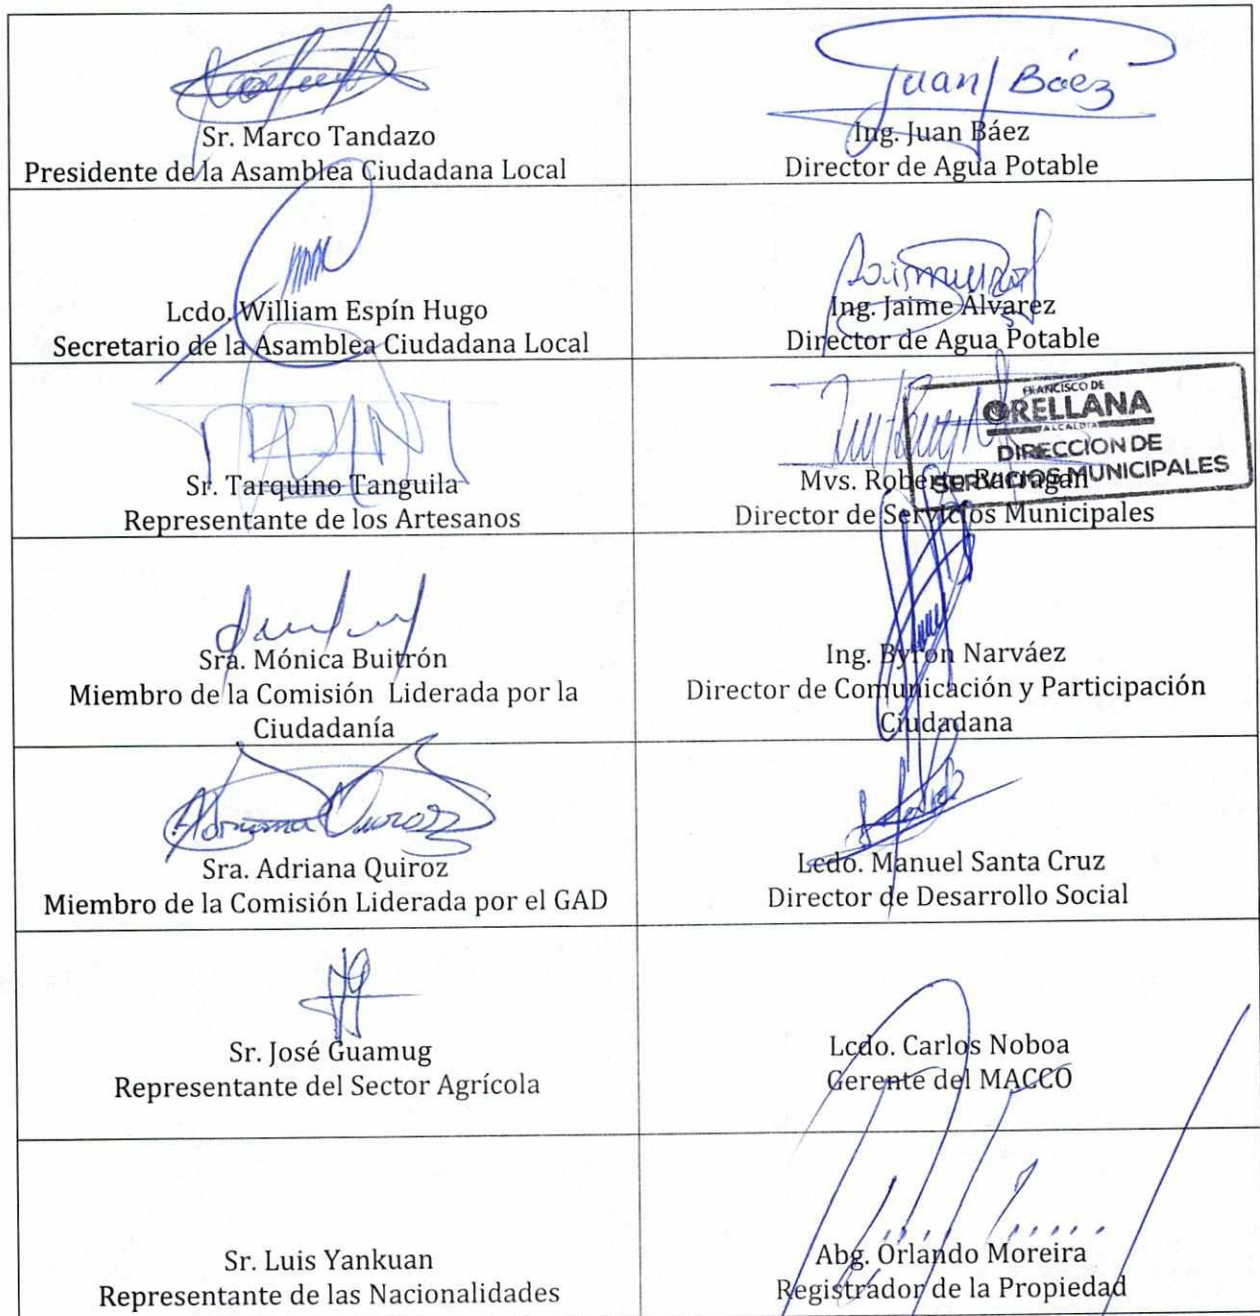 Sr. Marco Tandazo
Presidente de la Asamblea Ciudadana Local
Juan Báez
Ing. Juan Báez
Director de Agua Potable
Lcdo. William Espín Hugo
Secretario de la Asamblea Ciudadana Local
Ing. Jaime Álvarez
Director de Agua Potable
Sr. Tarquino Tanguila
Representante de los Artesanos
FRANCISCO DE
ORELLANA
ALCALDÍA
DIRECCION DE
SERVICIOS MUNICIPALES
Mvs. Roberto Barragán
Director de Servicios Municipales
Sra. Mónica Buitrón
Miembro de la Comisión Liderada por la
Ciudadanía
Ing. Byron Narváez
Director de Comunicación y Participación
Ciudadana
Adriana Quiroz
Sra. Adriana Quiroz
Miembro de la Comisión Liderada por el GAD
Lcdo. Manuel Santa Cruz
Director de Desarrollo Social
Sr. José Guamug
Representante del Sector Agrícola
Lcdo. Carlos Noboa
Gerente del MACCO
Sr. Luis Yankuan
Representante de las Nacionalidades
Abg. Orlando Moreira
Registrador de la Propiedad